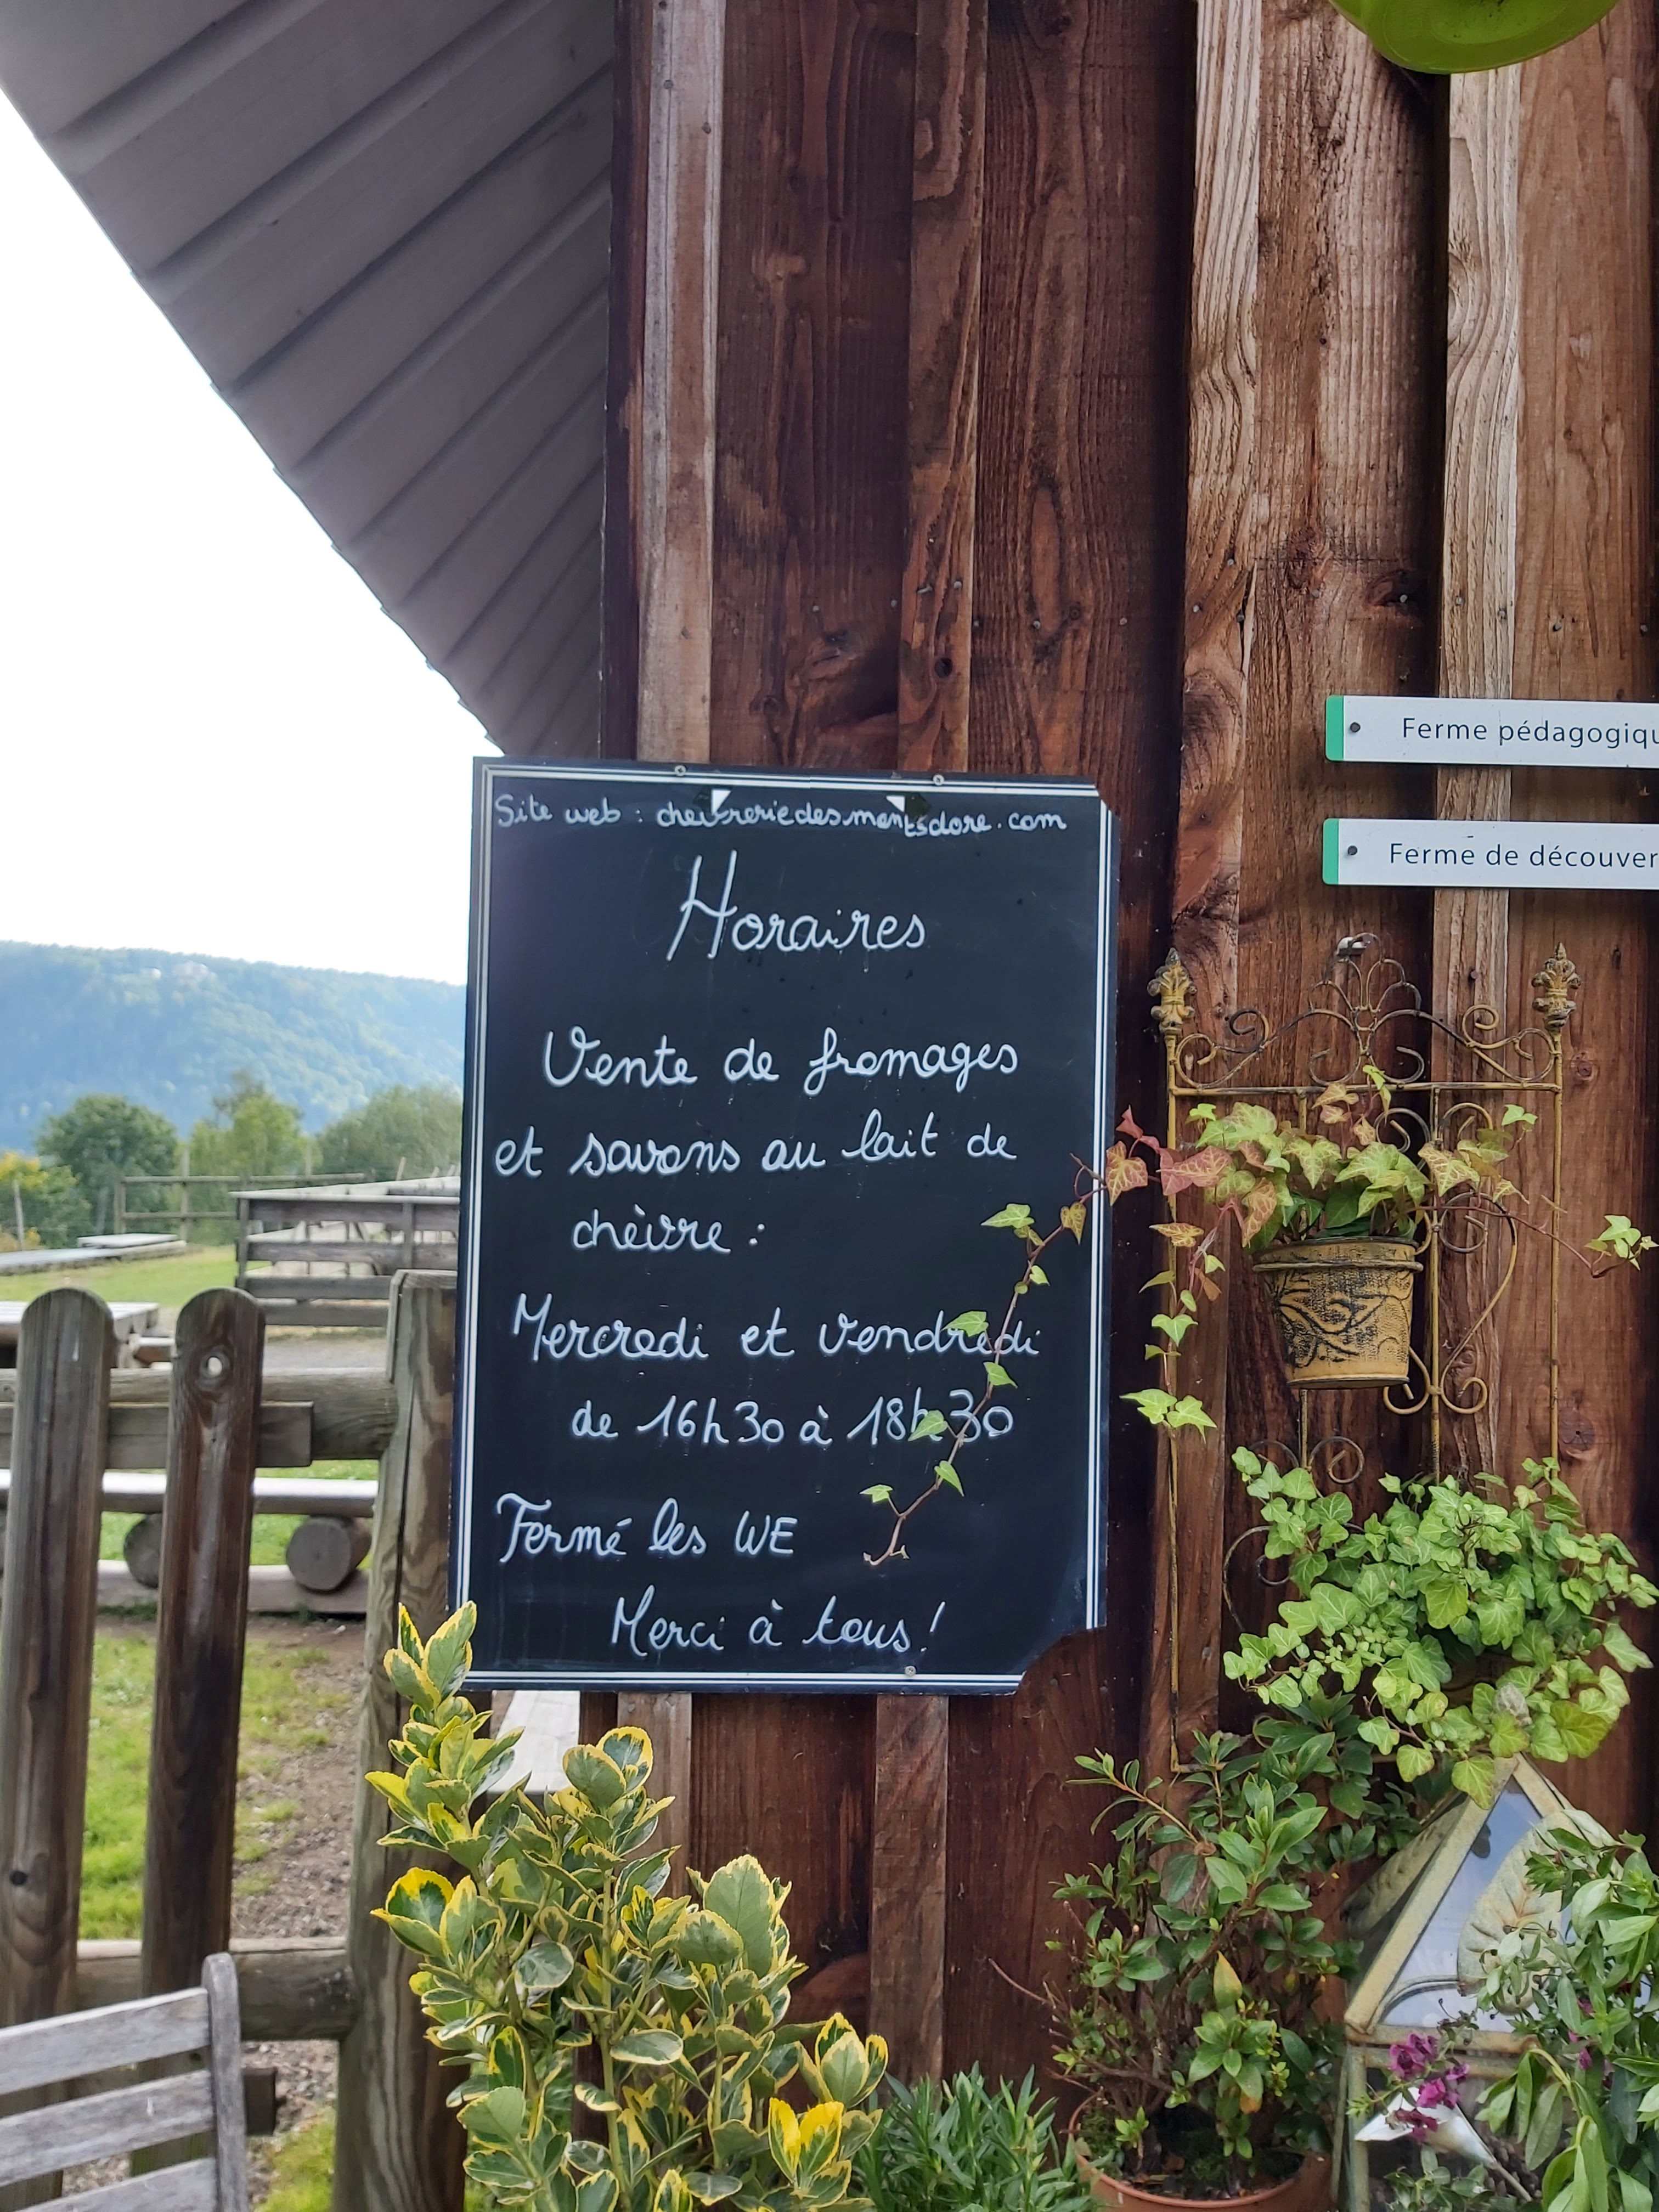 Site web : chevreriedesmontsdore.com
Horaires
Vente de fromages
et savons au lait de
chèvre :
Mercredi et vendredi
de 16h30 à 18h30
Fermé les WE
Merci à tous !
Ferme pédagogiqu
Ferme de découver